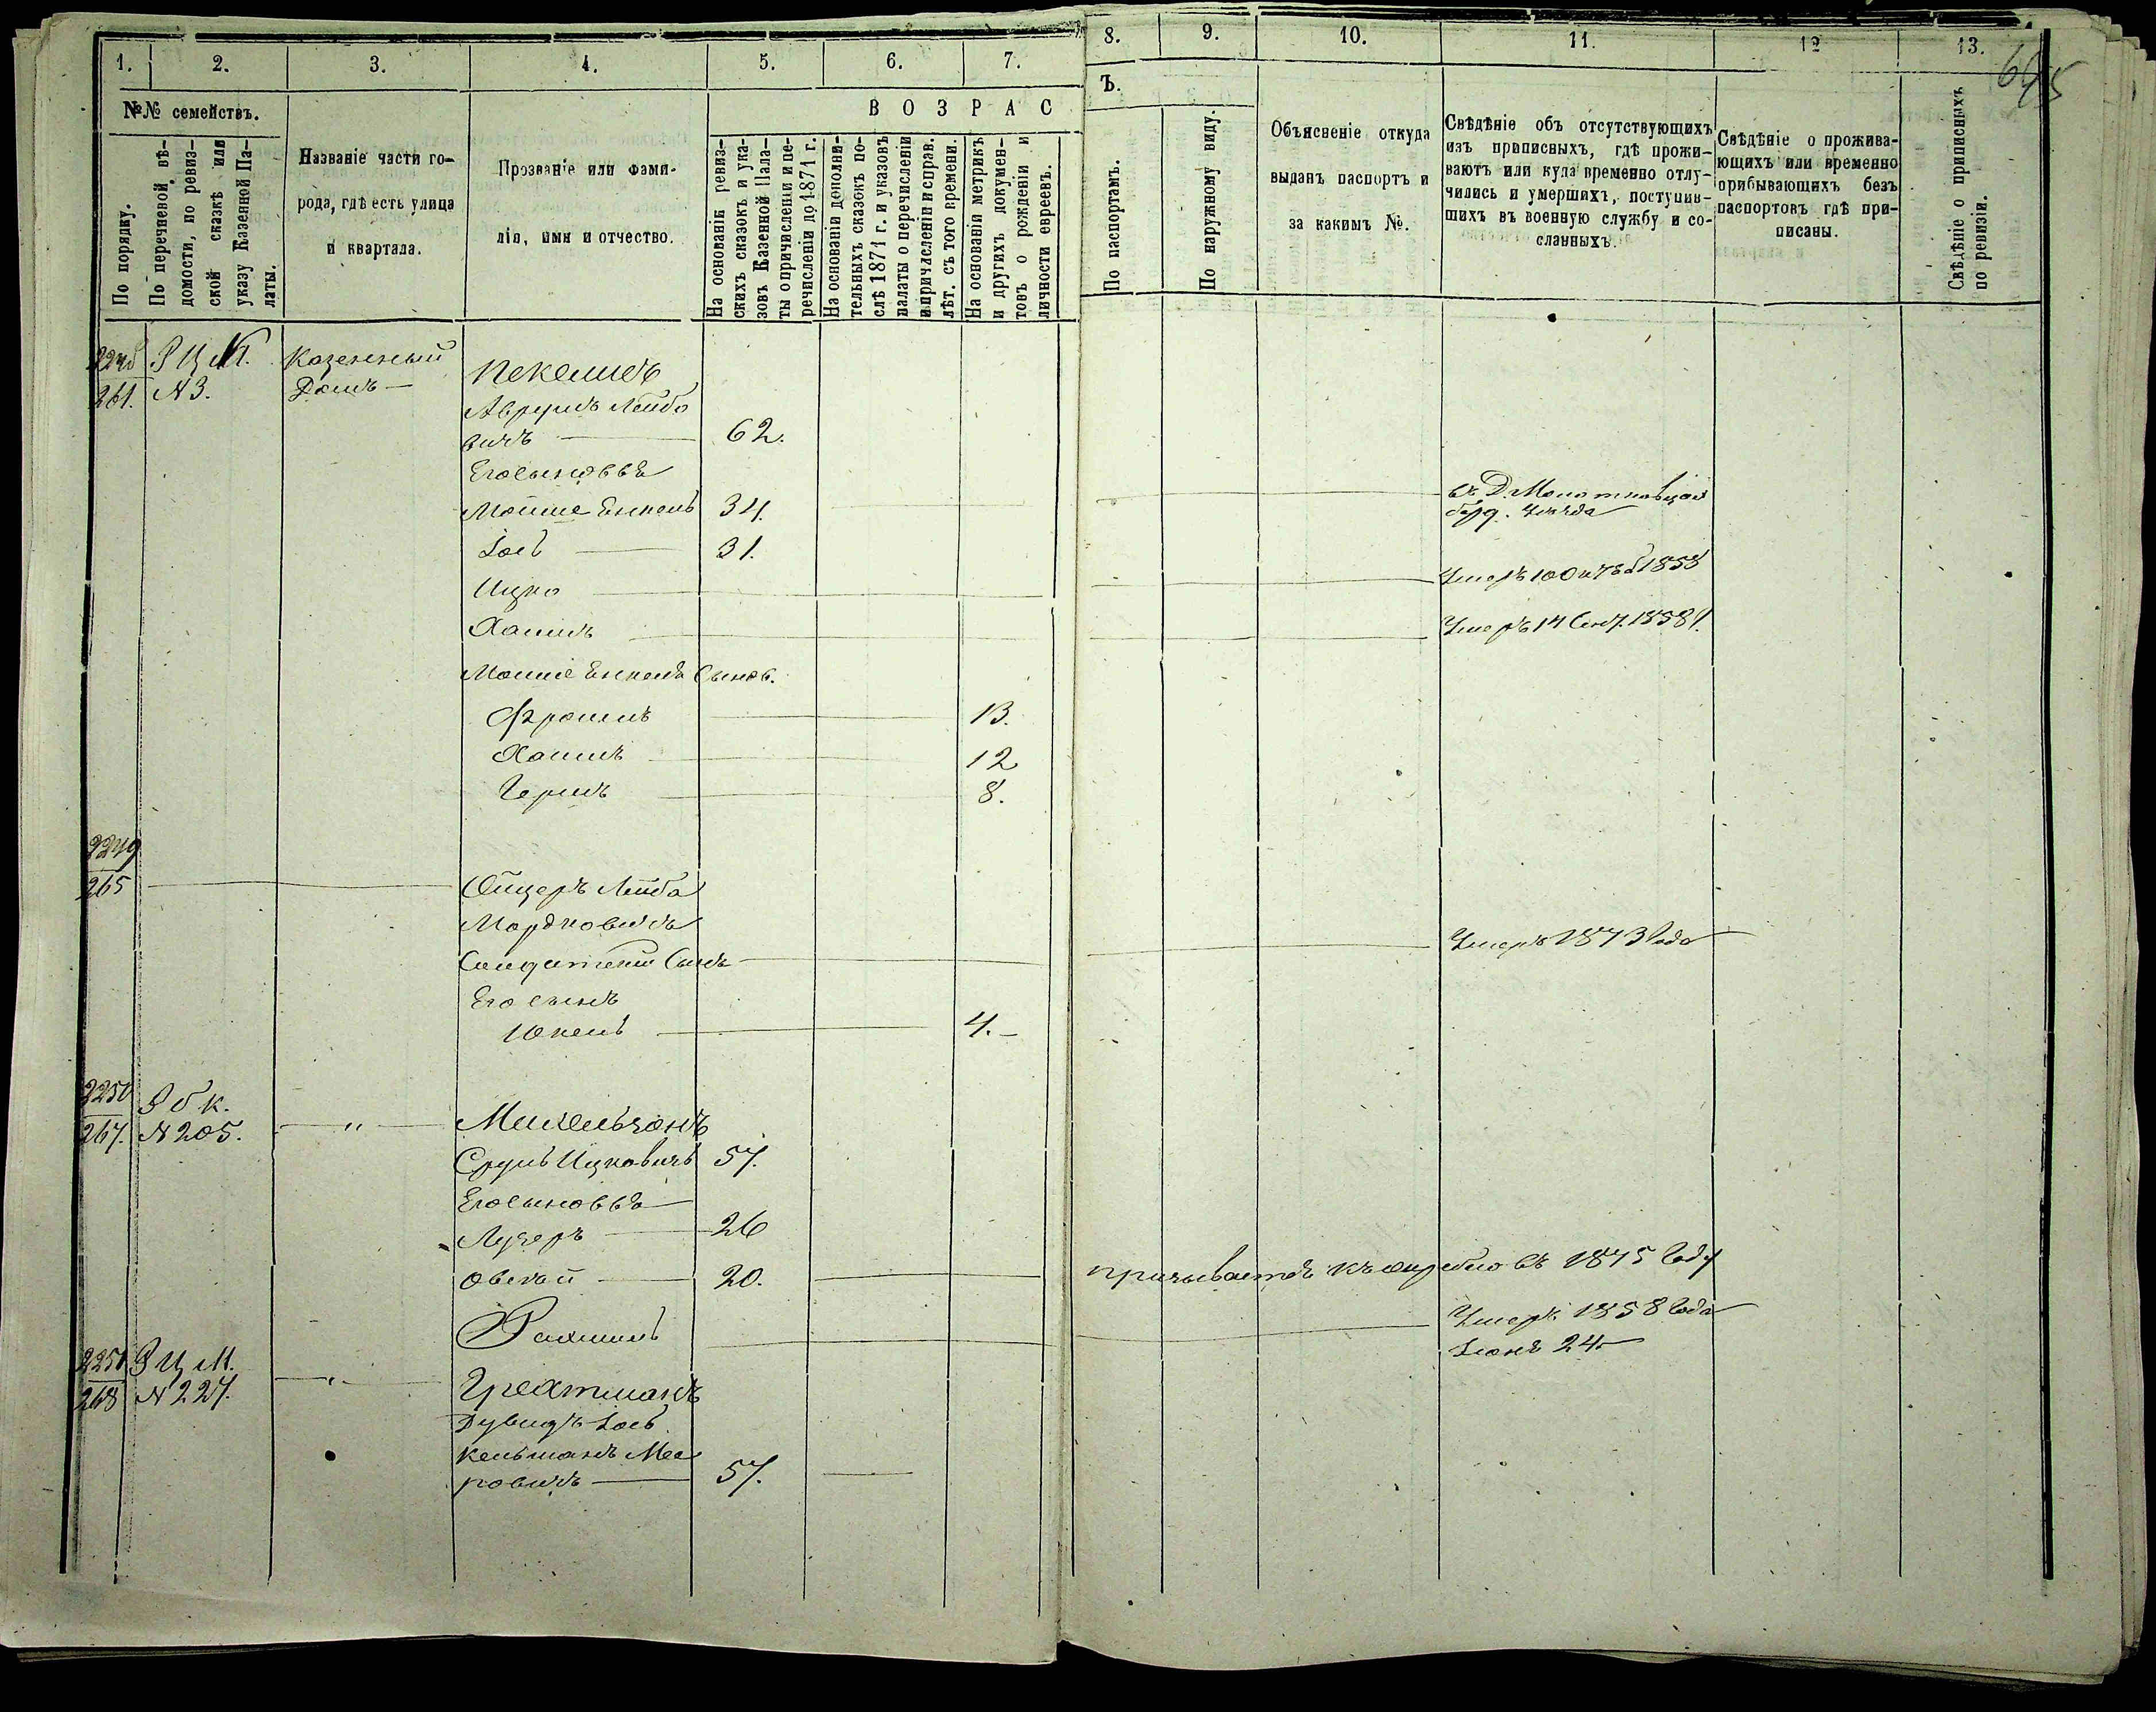 1. 2. 3. 4. 5. 6. 7. 8. 9. 10. 11. 12 13.
№№ семействъ.
По порядку.
По перечневой вѣ-
домости, по ревиз-
ской сказкѣ или
указу Казенной Па-
латы.
Названіе части го-
рода, гдѣ есть улица
и квартала.
Прозваніе или фами-
лія, имя и отчество.
ВОЗРАС
Ъ.
На основаніи ревиз-
скихъ сказокъ и ука-
зовъ Казенной Пала-
ты о причисленіи и пе-
речисленіи до 1871 г.
На основаніи дополни-
тельныхъ сказокъ по-
слѣ 1871 г. и указовъ
палаты о перечисленіи
и причисленіи и справ.
лѣт. съ того времени.
На основаніи метрикъ
и другихъ докумен-
товъ о рожденіи и
личности евреевъ.
По паспортамъ.
По наружному виду.
Объясненіе откуда
выданъ паспортъ и
за какимъ №.
Свѣдѣніе объ отсутствующихъ
изъ приписныхъ, гдѣ прожи-
ваютъ или куда временно отлу-
чились и умершихъ, поступив-
шихъ въ военную службу и со-
сланныхъ.
Свѣдѣніе о прожива-
ющихъ или временно
прибывающихъ безъ
паспортовъ гдѣ при-
писаны.
Свѣдѣніе о приписныхъ
по ревизіи.
2248 Казенный
261. №3. Домъ
Аврумъ Лейбо
вичъ 62.
Его сыновья
Мошие 34.
Іось 31.
Ицко Умеръ 1858
Хаимъ Умеръ 14 Сент. 1858 г.
Сынов.
Фроимъ 13.
Хаимъ 12
Гершъ 8.
2249
265 Лейба
Мордковичъ Умеръ 1873 года
Сынъ
Его сынъ
4.
2250
267. №205. "
Срулъ Ицковичъ 57.
Его сыновья
Лузеръ 26
Овсѣй 20. призывается къ жребію въ 1875 году
Рахмиль Умеръ 1858 года
Іюня 24
2251
268 №227.
Дувидъ Іось
Кельманъ Мее
ровичъ 57.